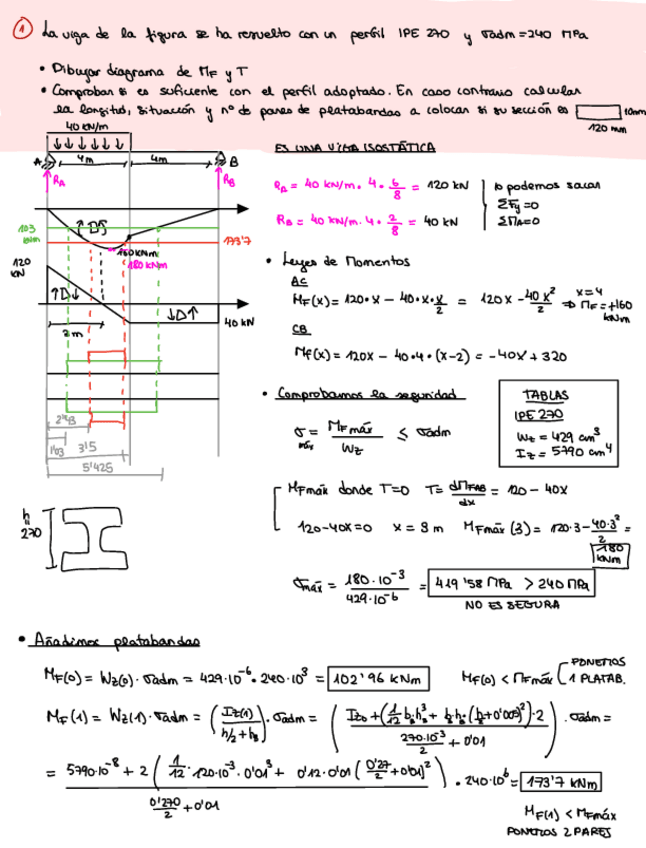 ① La viga de la figura se ha resuelto con un perfil IPE 270 y σadm = 240 MPa
• Dibujar diagrama de MF y T
• Comprobar si es suficiente con el perfil adoptado. En caso contrario calcular
la longitud, situación y nº de pares de platabandas a colocar si su sección es 10mm
120 mm
40 KN/m
A 4m 4m B
RA RB
103 KNm
160KNm
180 KNm
173'7
120 KN
40 KN
2m
2'48
1'03 3'15
5'425
h = 270
ES UNA VIGA ISOSTÁTICA
RA = 40 KN/m · 4 · 6/8 = 120 KN
RB = 40 KN/m · 4 · 2/8 = 40 KN
lo podemos sacar
ΣFy=0
ΣMA=0
• Leyes de Momentos
AC
MF(x) = 120·x − 40·x·x/2 = 120x − 40x²/2 x=4 ⇒ MF=+160 KNm
CB
MF(x) = 120x − 40·4·(x−2) = −40x + 320
• Comprobamos la seguridad
σmáx = MFmáx/Wz ≤ σadm
TABLAS
IPE 270
Wz = 429 cm³
Iz = 5790 cm⁴
MFmáx donde T=0 T = dMFAB/dx = 120 − 40x
120−40x=0 x = 3 m MFmáx (3) = 120·3 − 40·3²/2 = 180 KNm
σmáx = 180·10⁻³/429·10⁻⁶ = 419'58 MPa > 240 MPa
NO ES SEGURA
• Añadimos platabandas
MF(0) = Wz(0) · σadm = 429·10⁻⁶ · 240·10³ = 102'96 KNm MF(0) < MFmáx [PONEMOS 1 PLATAB.
MF(1) = Wz(1) · σadm = (Iz(1)/(h/2 + hb)) · σadm = ((Iz0 + (1/12 b·hb³ + b·hb·(h/2+0'005)²)·2)/(270·10⁻³/2 + 0'01)) · σadm =
= (5790·10⁻⁸ + 2 (1/12 · 120·10⁻³ · 0'01³ + 0'12·0'01 (0'27/2 + 0'01)²))/(0'270/2 + 0'01) · 240·10⁶ = 173'7 KNm
MF(1) < MFmáx
PONEMOS 2 PARES